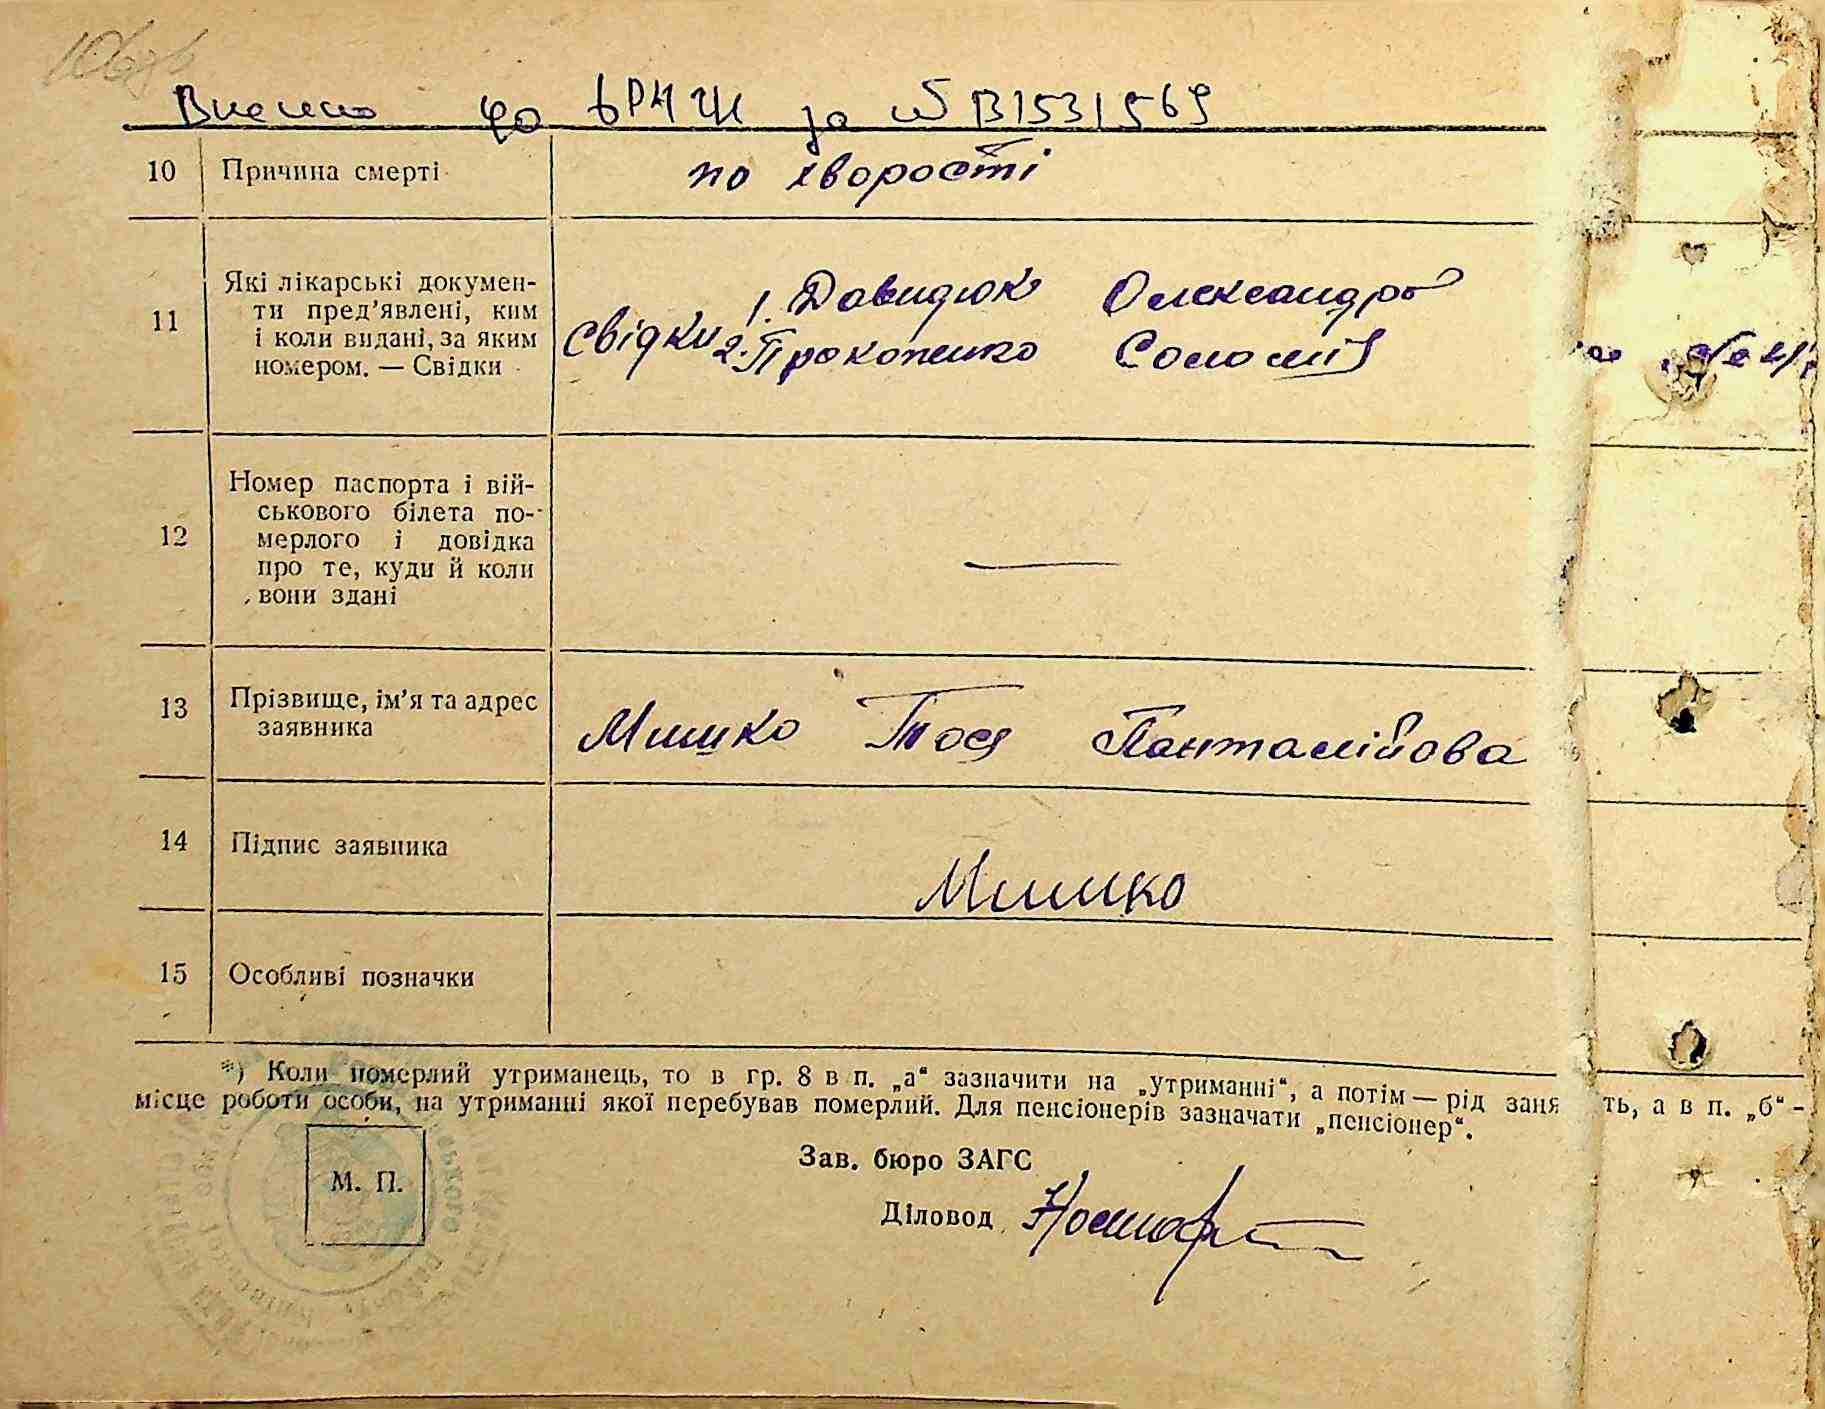 Внесено до ЄРНЖ за № 131531569
10 Причина смерті по хворості
11 Які лікарські документи пред’явлені, ким і коли видані, за яким номером. — Свідки
Свідки 1. Давидюк Олександр
2. Прокопенко Соломія
12 Номер паспорта і військового білета померлого і довідка про те, куди й коли вони здані —
13 Прізвище, ім’я та адрес заявника Мишко Тося Панталійова
14 Підпис заявника Мишко
15 Особливі позначки
*) Коли померлий утриманець, то в гр. 8 в п. „а“ зазначити на „утриманні“, а потім — рід заня ть, а в п. „б“ -
місце роботи особи, на утриманні якої перебував померлий. Для пенсіонерів зазначати „пенсіонер“.
М. П.
Зав. бюро ЗАГС
Діловод